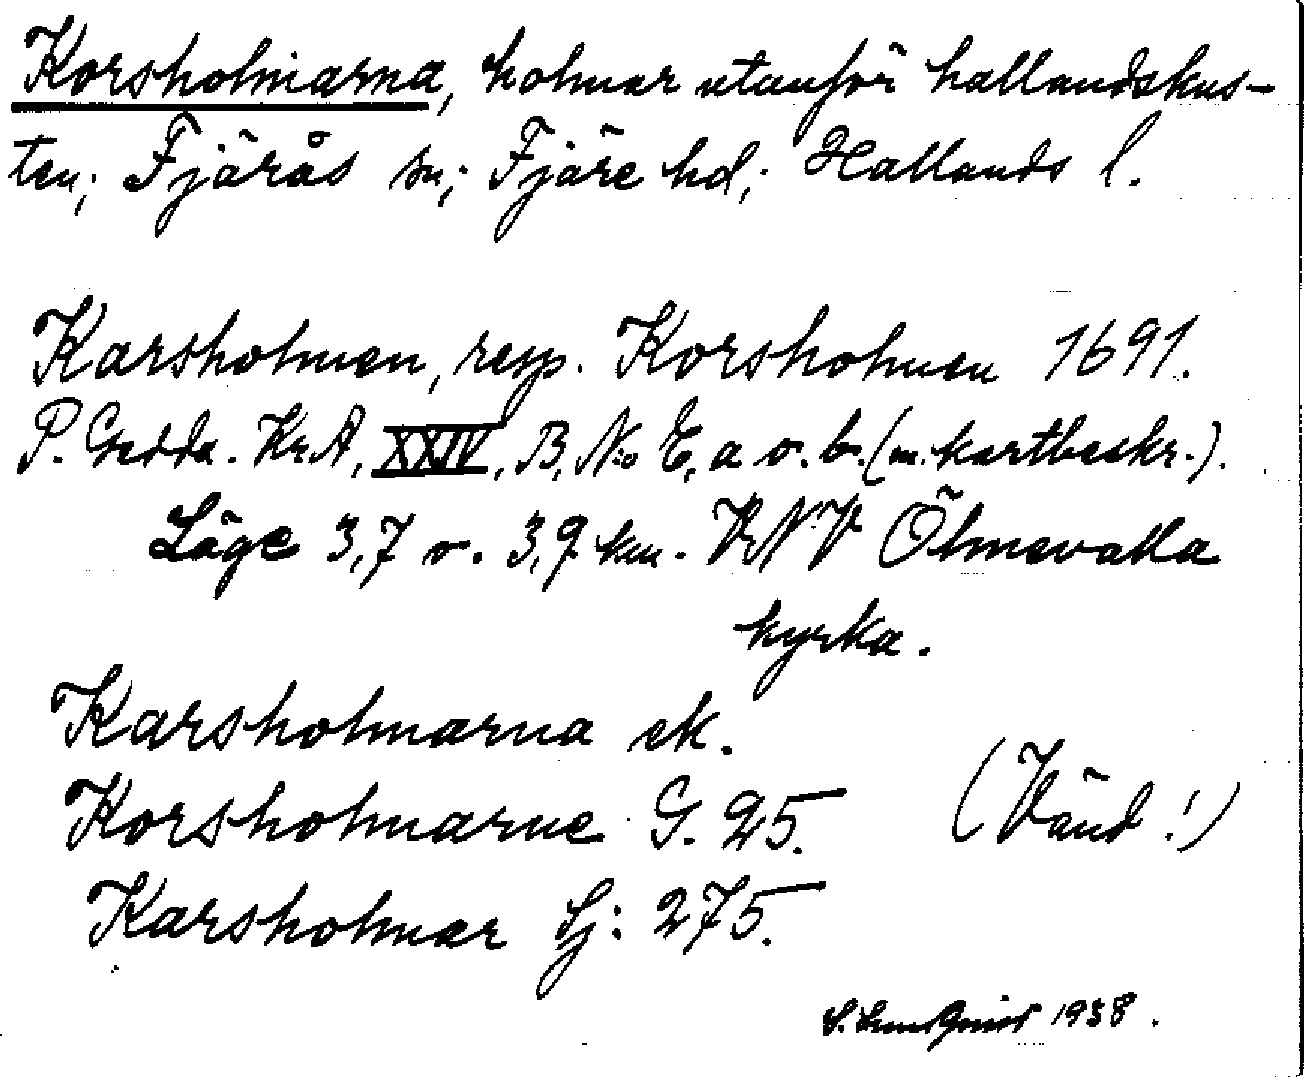 Korsholmarna, holmar utanför hallandskus-
ten; Fjärås sn; Fjäre hd; Hallands l.
Karsholmen, resp. Korsholmen 1691.
P. Gedda. Kr.A, XXIV, B, N:o E, a o. b. (m. kartbeskr.).
Läge 3,7 o. 3,9 km. VNV Ölmevalla
kyrka.
Karsholmarna ek.
Korsholmarne G. 25.
(Vänd!)
Karsholmar Sj: 275.
S. Lundquist 1938.